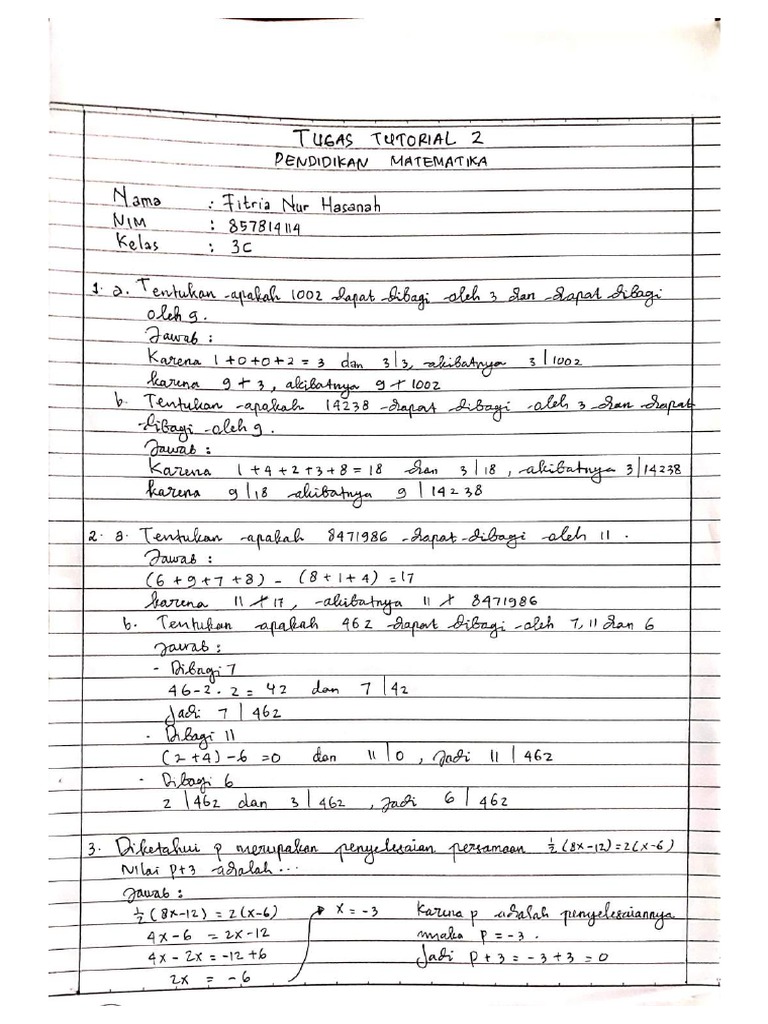 TUGAS TUTORIAL 2
PENDIDIKAN MATEMATIKA
Nama : Fitria Nur Hasanah
NIM : 857814114
Kelas : 3C
1. a. Tentukan apakah 1002 dapat dibagi oleh 3 dan dapat dibagi
oleh 9.
Jawab :
Karena 1+0+0+2 = 3 dan 3|3, akibatnya 3|1002
karena 9 ∤ 3, akibatnya 9 ∤ 1002
b. Tentukan apakah 14238 dapat dibagi oleh 3 dan dapat
dibagi oleh 9.
Jawab :
Karena 1+4+2+3+8 = 18 dan 3|18, akibatnya 3|14238
karena 9|18 akibatnya 9|14238
2. a. Tentukan apakah 8471986 dapat dibagi oleh 11.
Jawab :
(6+9+7+8) - (8+1+4) = 17
karena 11 ∤ 17, akibatnya 11 ∤ 8471986
b. Tentukan apakah 462 dapat dibagi oleh 7, 11 dan 6
Jawab :
- Dibagi 7
46-2.2 = 42 dan 7|42
Jadi 7|462
- Dibagi 11
(2+4)-6 = 0 dan 11|0, Jadi 11|462
- Dibagi 6
2|462 dan 3|462, Jadi 6|462
3. Diketahui p merupakan penyelesaian persamaan ½(8x-12)=2(x-6)
Nilai p+3 adalah...
Jawab :
½(8x-12) = 2(x-6)
4x-6 = 2x-12
4x-2x = -12+6
2x = -6
x = -3
Karena p adalah penyelesaiannya
maka p = -3.
Jadi p+3 = -3+3 = 0